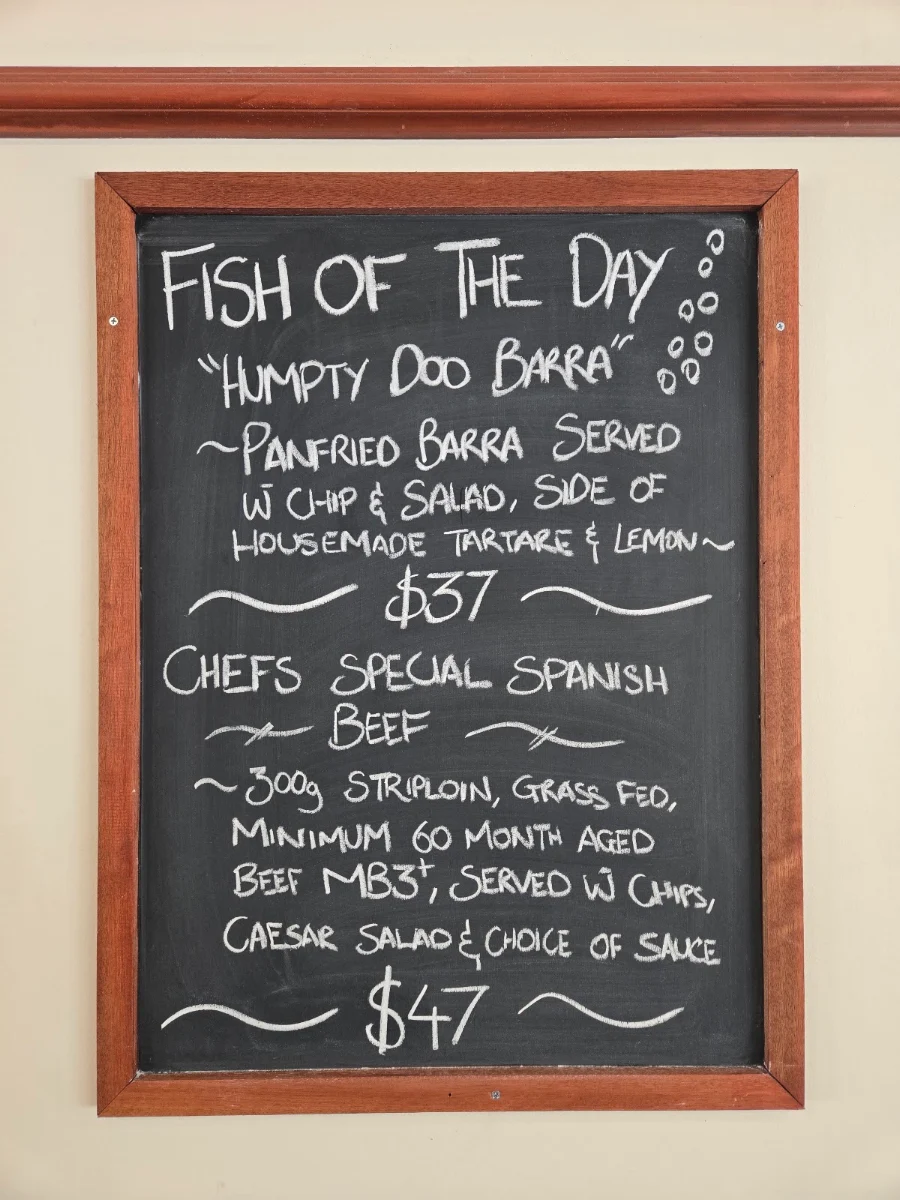 FISH OF THE DAY
"HUMPTY DOO BARRA"
~PANFRIED BARRA SERVED
W̄ CHIP & SALAD, SIDE OF
HOUSEMADE TARTARE & LEMON~
$37
CHEFS SPECIAL SPANISH
BEEF
~300g STRIPLOIN, GRASS FED,
MINIMUM 60 MONTH AGED
BEEF MB3+, SERVED W̄ CHIPS,
CAESAR SALAD & CHOICE OF SAUCE
$47